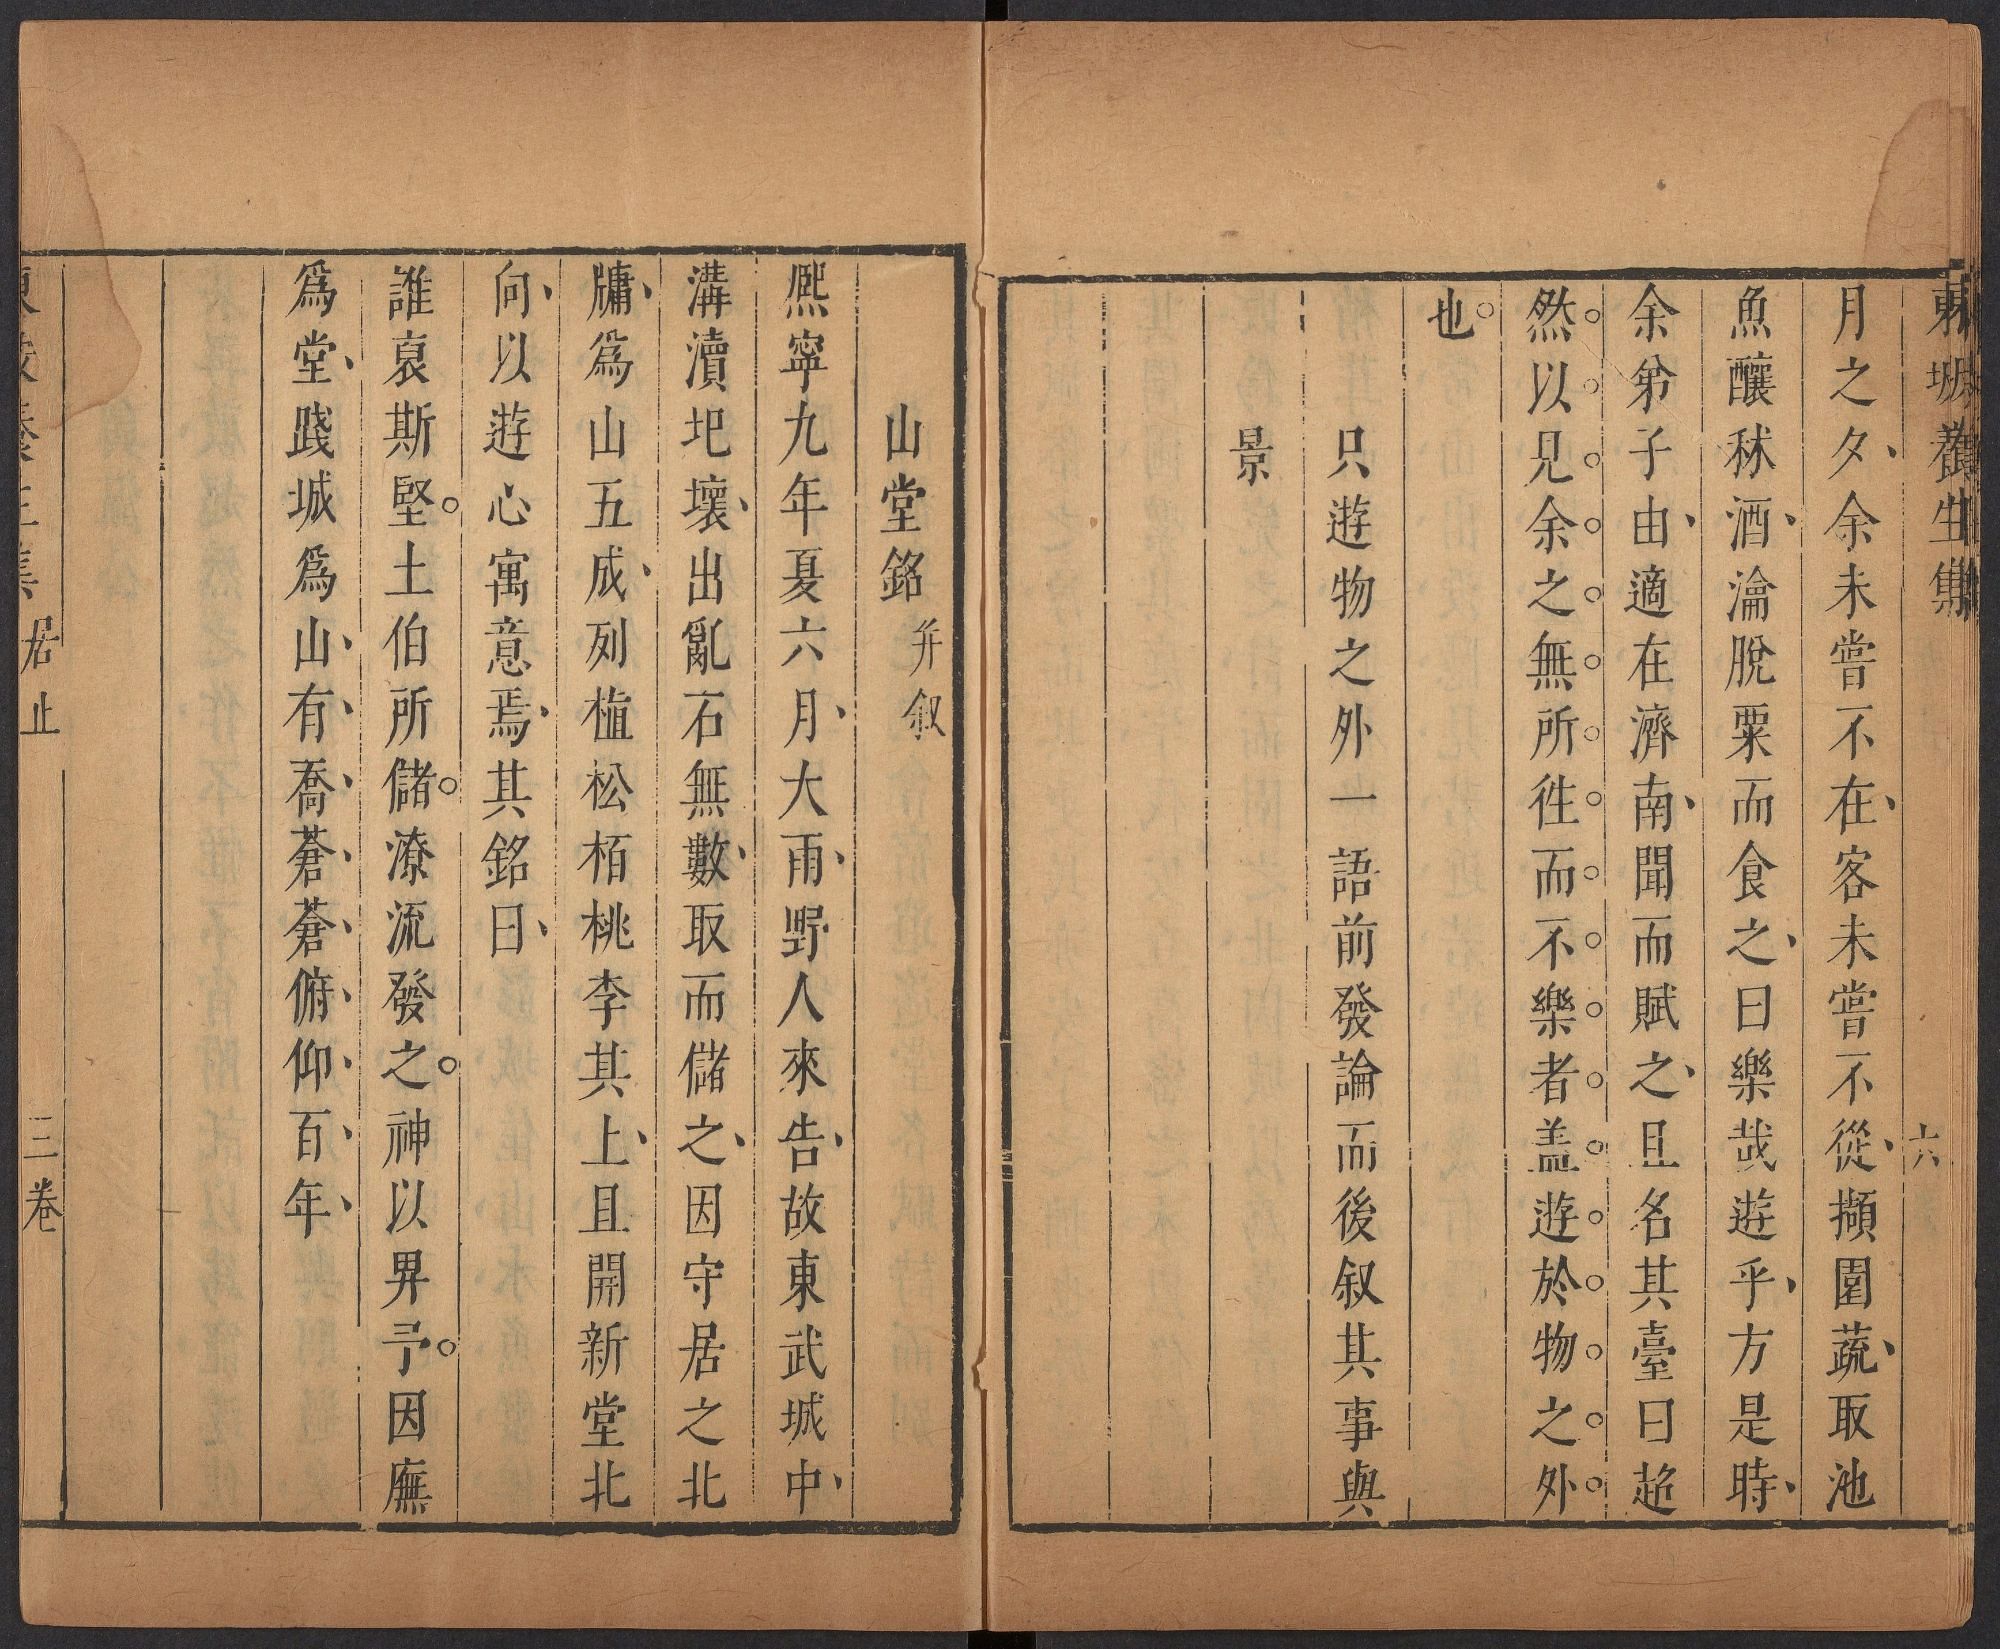 東坡養生集
六
月之夕余未嘗不在客未嘗不從擷園蔬取池
魚釀秫酒瀹脫粟而食之曰樂哉遊乎方是時
余弟子由適在濟南聞而賦之且名其臺曰超
然以見余之無所徃而不樂者盖遊於物之外
也
只遊物之外一語前發論而後叙其事與
景
山堂銘 并叙
熈寧九年夏六月大雨野人來告故東武城中
溝瀆圯壞出亂石無數取而儲之因守居之北
牗爲山五成列植松栢桃李其上且開新堂北
向以遊心寓意焉其銘曰
誰裒斯堅土伯所儲潦流發之神以畀予因廡
爲堂踐城爲山有喬蒼蒼俯仰百年
東坡養生集 居止
三卷